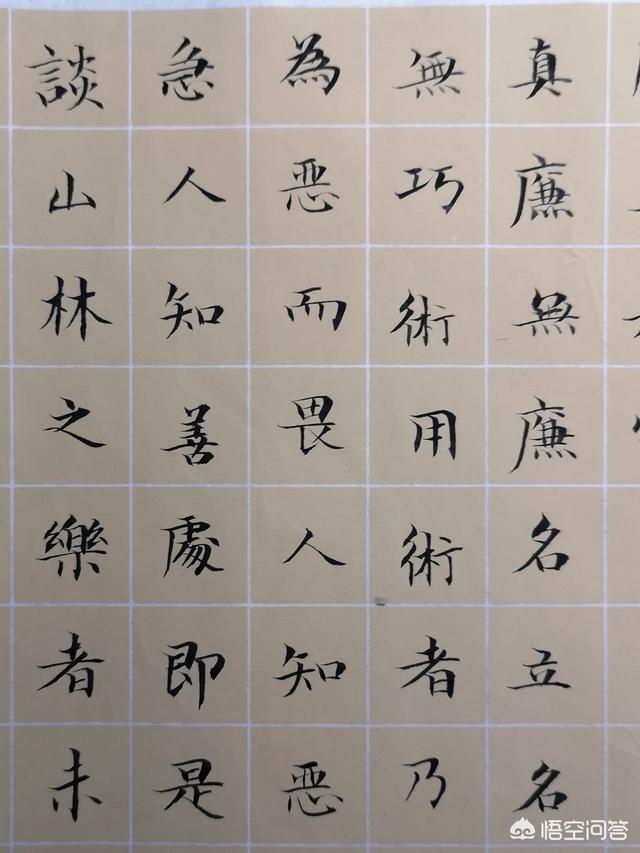 真廉無廉名立名
無巧術用術者乃
為恶而畏人知恶
急人知善處即是
談山林之樂者未
悟空问答